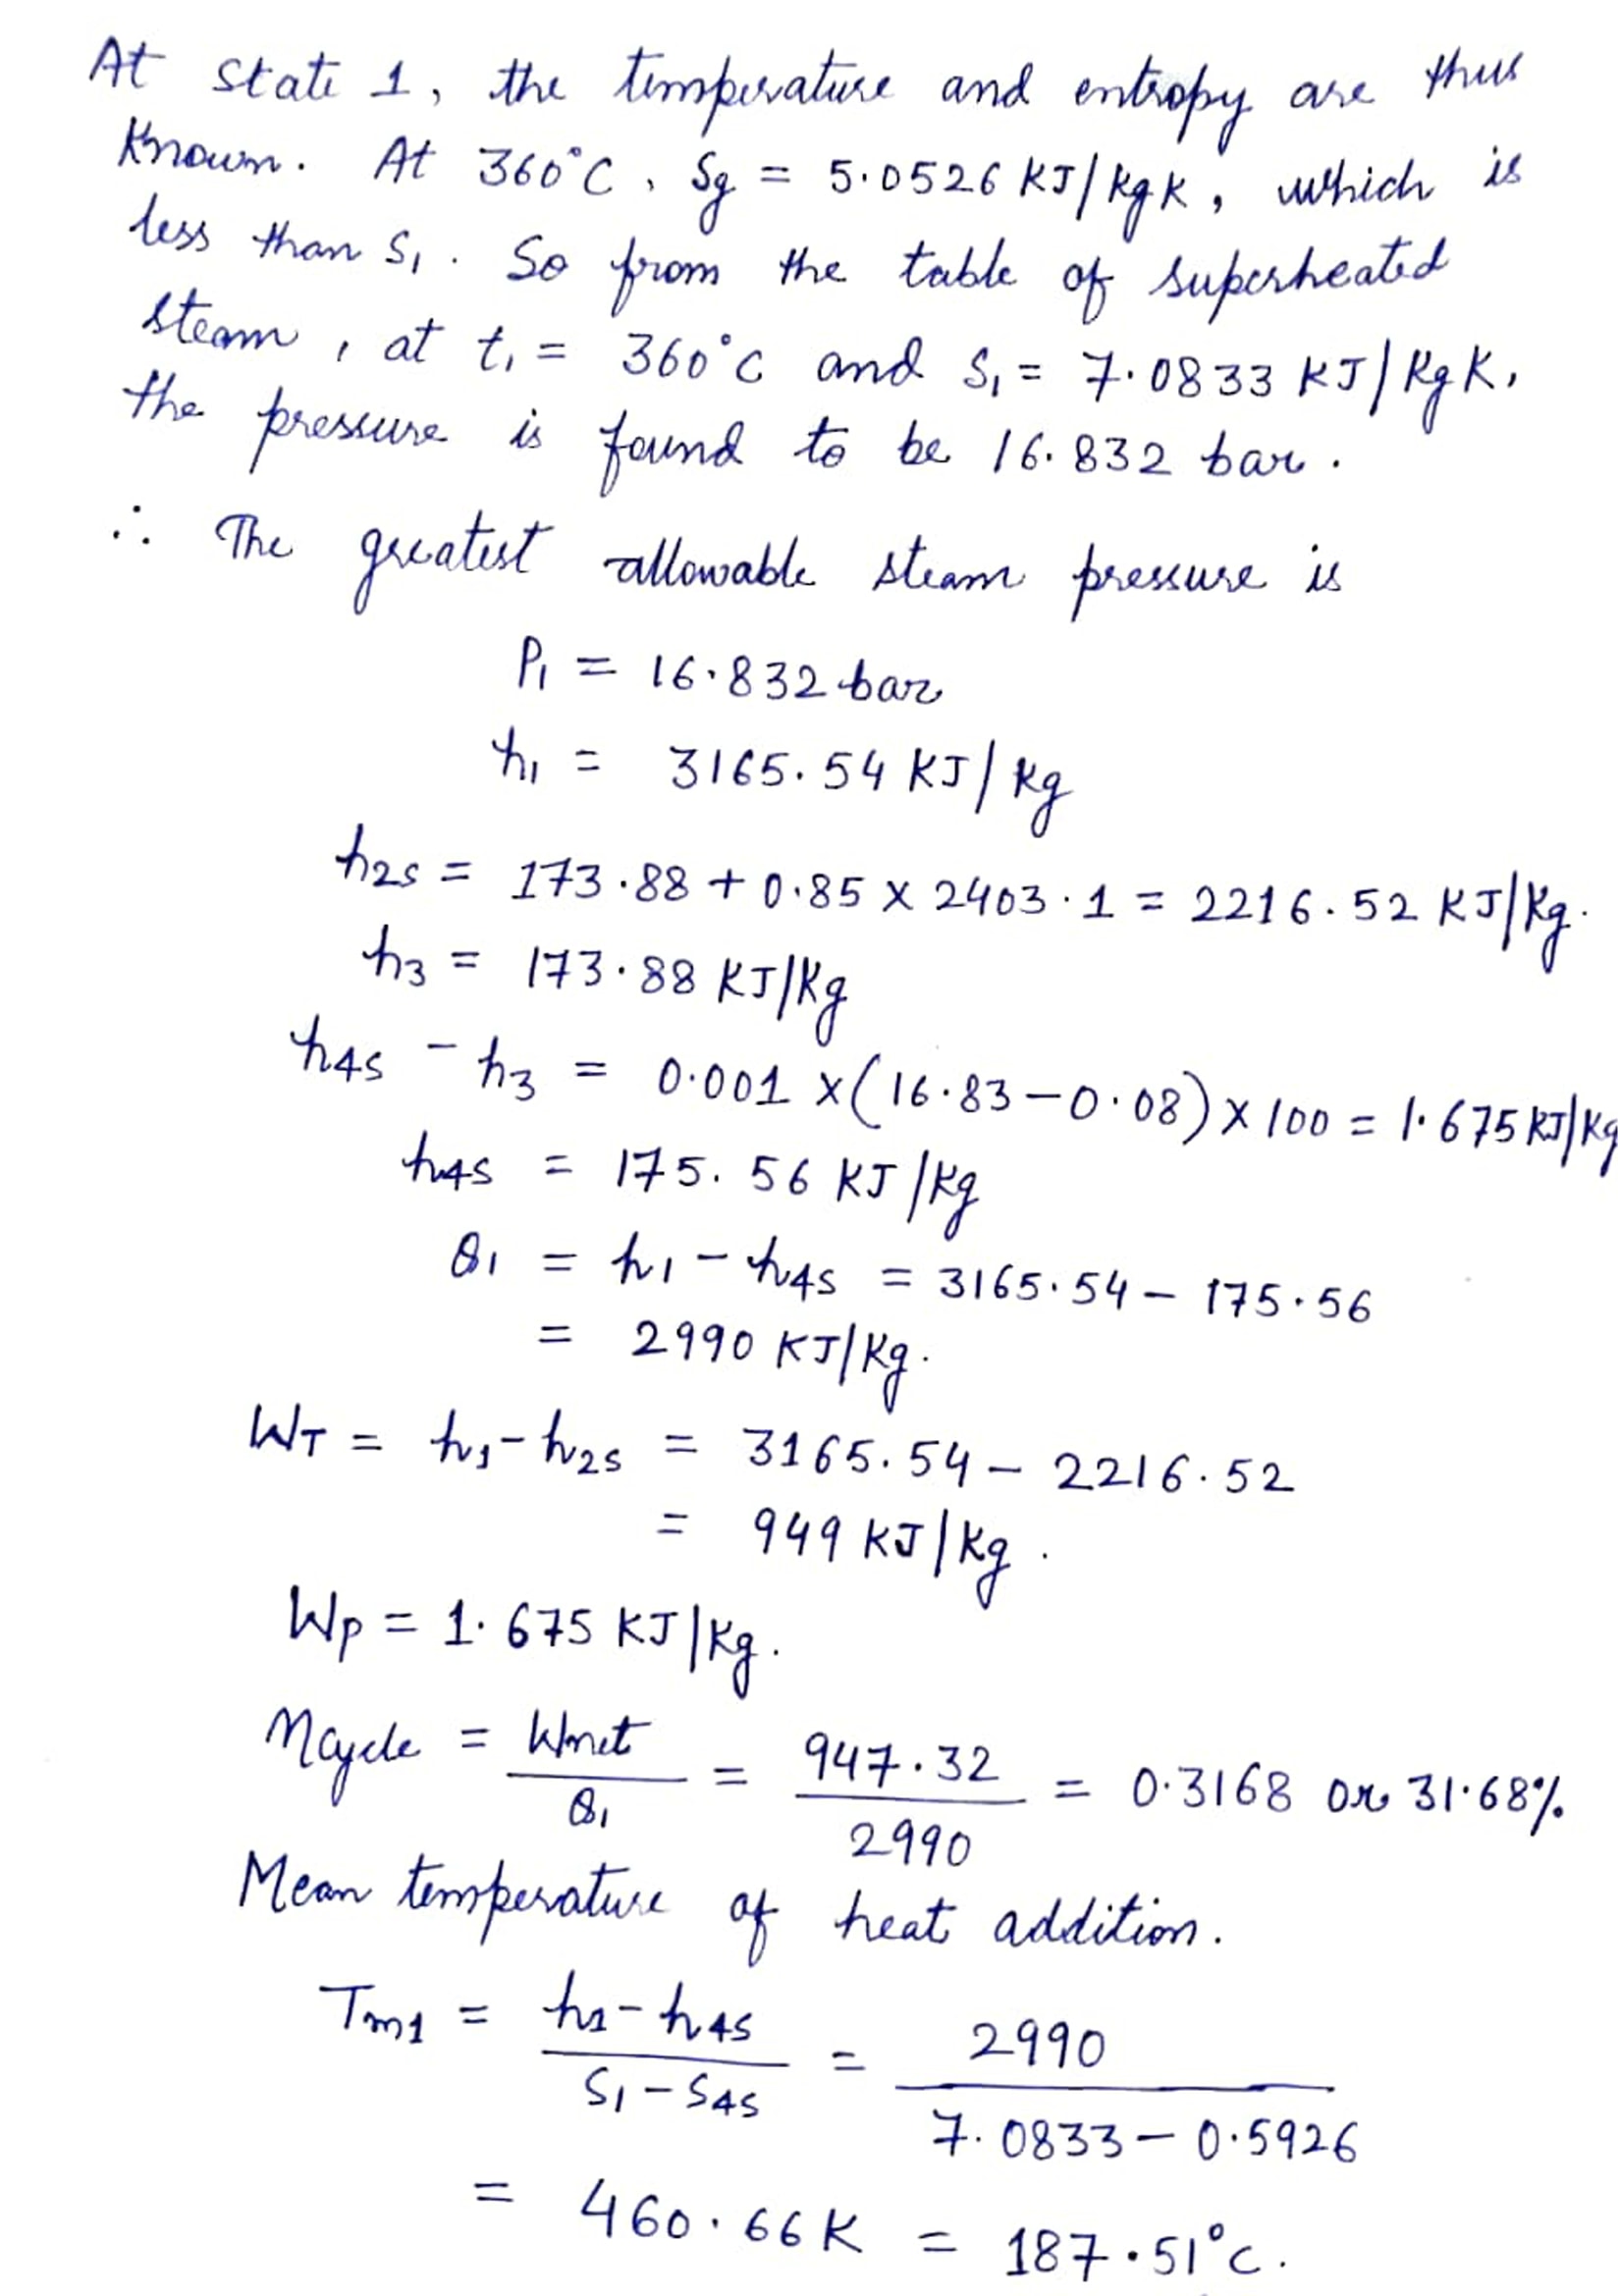 At state 1, the temperature and entropy are thus
Known. At 360°C, Sg = 5.0526 KJ/kgK, which is
less than S₁. So from the table of superheated
steam, at t₁ = 360°C and S₁ = 7.0833 KJ/KgK,
the pressure is found to be 16.832 bar.
∴ The greatest allowable steam pressure is
P₁ = 16.832 bar
h₁ = 3165.54 KJ/kg
h₂s = 173.88 + 0.85 × 2403.1 = 2216.52 KJ/kg.
h₃ = 173.88 KJ/Kg
h₄s - h₃ = 0.001 × (16.83 - 0.08) × 100 = 1.675 KJ/Kg
h₄s = 175.56 KJ/kg
Q₁ = h₁ - h₄s = 3165.54 - 175.56
= 2990 KJ/kg.
W_T = h₁ - h₂s = 3165.54 - 2216.52
= 949 KJ/kg.
Wp = 1.675 KJ/kg.
ηcycle = Wnet/Q₁ = 947.32/2990 = 0.3168 or 31.68%
Mean temperature of heat addition.
Tm₁ = (h₁ - h₄s)/(S₁ - S₄s) = 2990/(7.0833 - 0.5926)
= 460.66 K = 187.51°C.